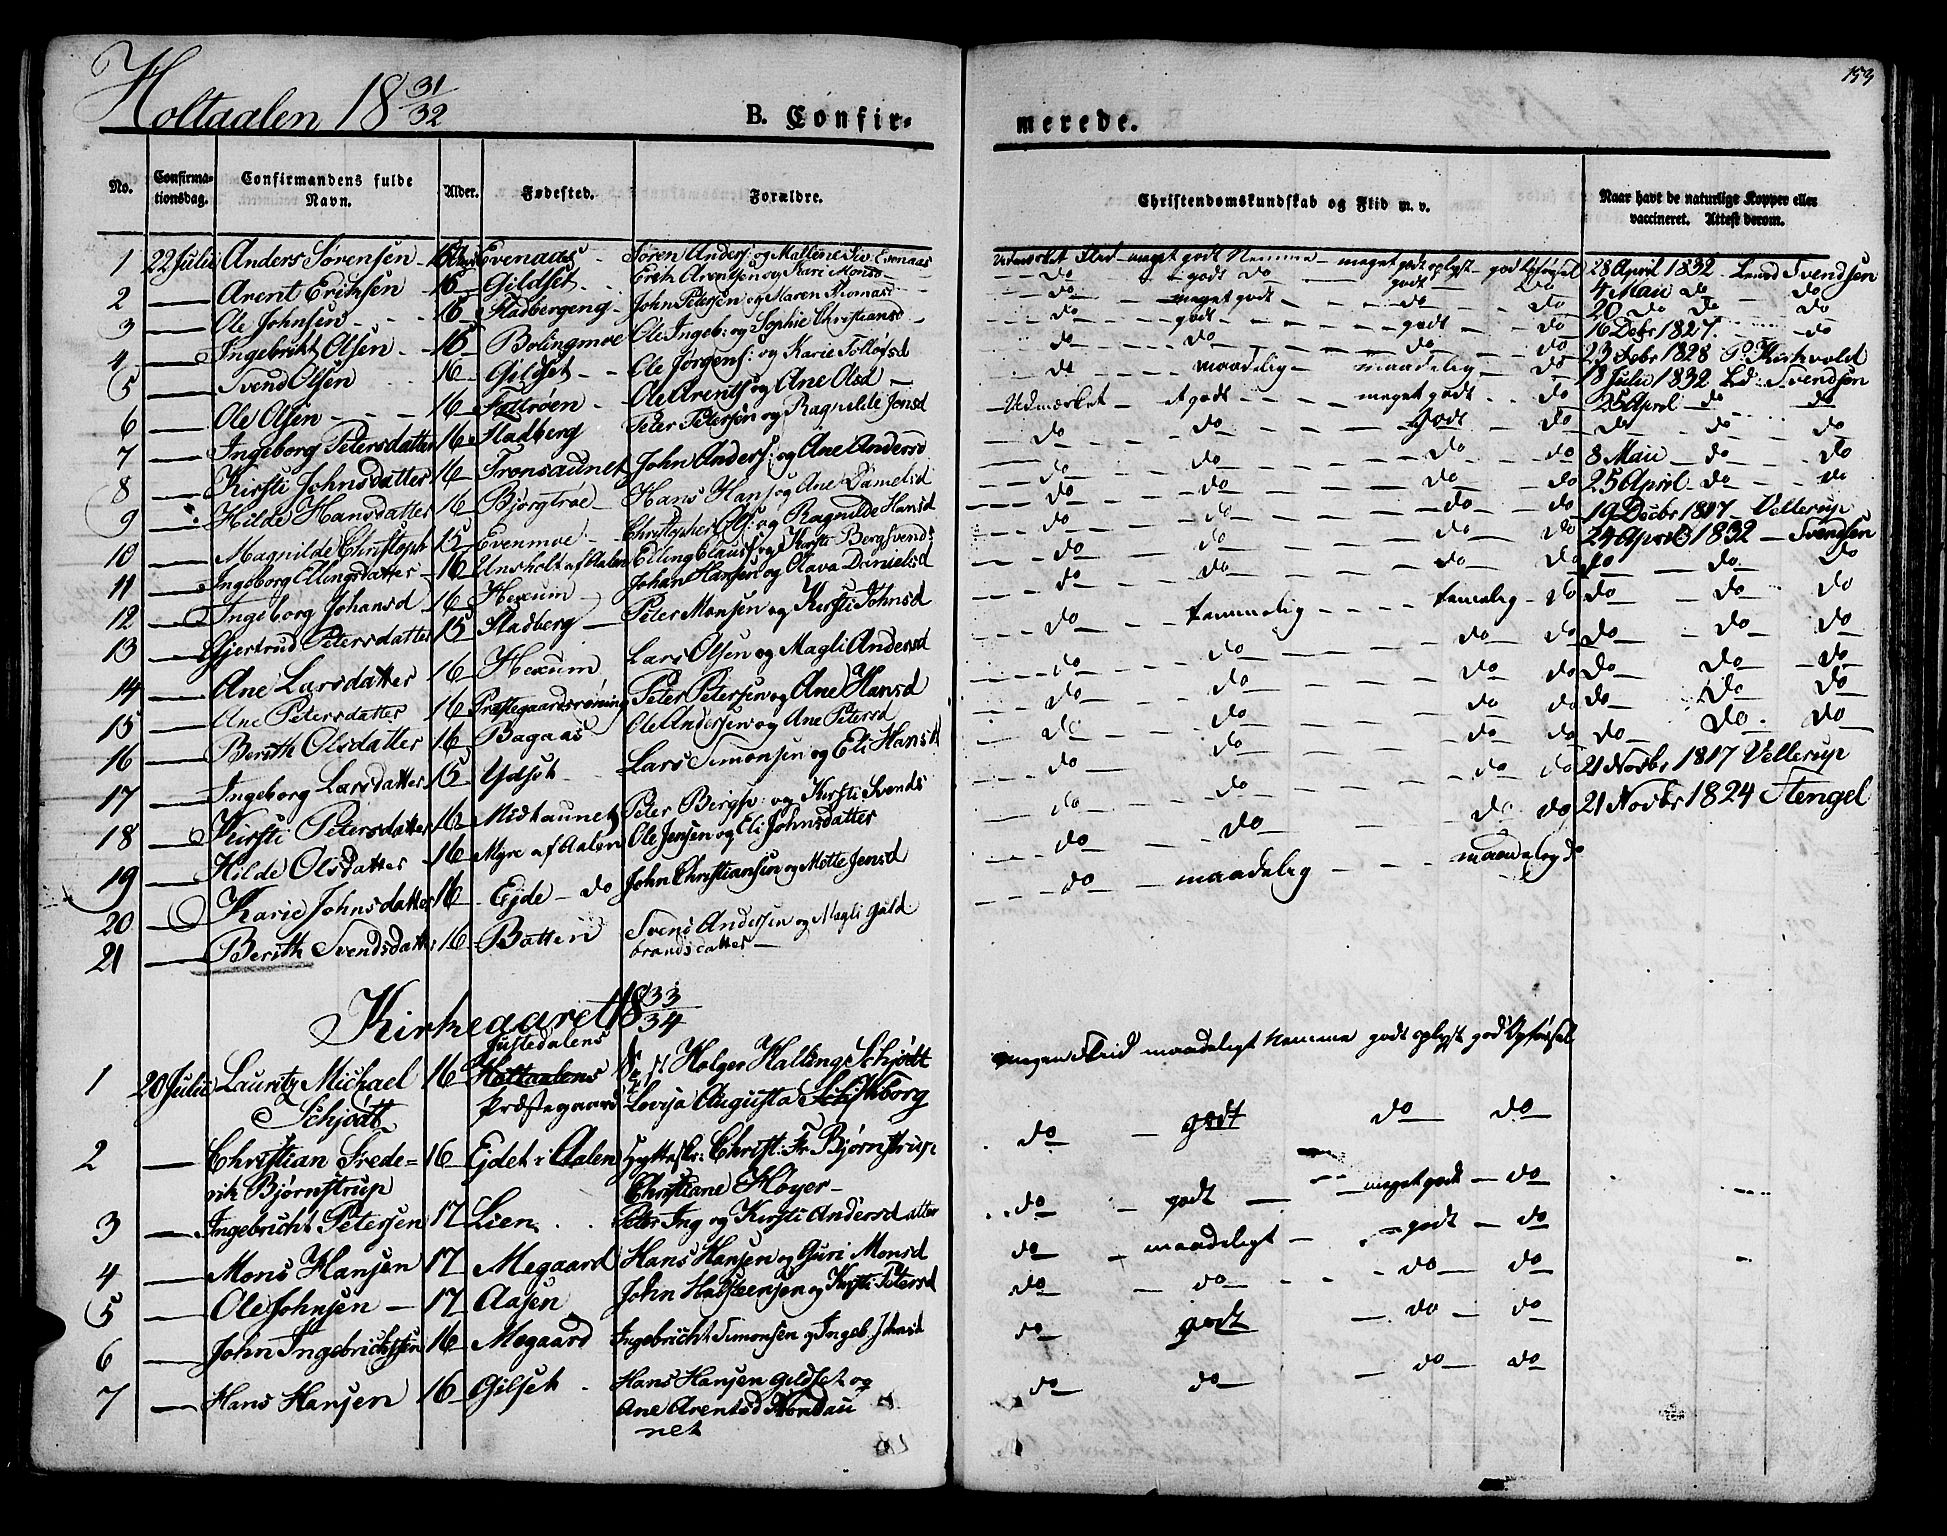 153
Holtaalen 18 31/32
B. Confir-
merede.
No.
Confirma-
tionsdag.
Confirmandens fulde
Navn.
Alder.
Fødested.
Forældre.
Christendomskundskab og Flid m. v.
Naar havt de naturlige Kopper eller
vaccineret. Attest derom.
1 22 Julii Anders Sørensen Evenaas Søren Anders: og Mallene Evenaas Udmærket Flid meget godt Nemme meget godt oplyst god Opførsel 28 April 1832 Svendsen
2 — Arent Eriksen 16 Gildset Erik Arentsen og Kari Monsd do godt do godt do 4 Maii do do
3 — Ole Johnsen 16 Hladbergeng John Petersen og Maren Thomasd do meget godt do do 20 do do do
4 — Ingebrikt Olsen 16 Bolingmoe Ole Ingeb: og Sophie Christiansd do godt godt do 16 Debr 1827 do
5 — Svend Olsen 16 Gildset Ole Jørgens: og Karie Tollofsd do do do do 23 Febr 1828 P. Kirkvold
6 — Ole Olsen 16 Ole Arents og Ane Olsd do maadelig maadelig do 18 Julii 1832 Svendsen
7 — Ingeborg Petersdatter 16 Hladberg Peter Petersen og Ragnilde Jonsd Udmærket godt meget godt do 25 April do do
8 — Kirsti Johnsdatter 16 Tronsaunet John Anders: og Ane Andersd do do Godt do do do do
9 — Hilde Hansdatter 16 Bjørgtrøe Hans Hans: og Ane Danielsd do do do do 8 Maii do do
10 — Magnilde Christoph 15 Evenmoe Christopher Ols: og Ragnilde Hansd do do do do 25 April do do
11 — Ingeborg Ellingsdatter 16 Unsholt af Aalen Elling Clauss og Kirsti Bergsvend: do do do do 19 Decbr 1817 Vellerup
12 — Ingeborg Johansd 16 Hexum Johan Hansen og Olava Danielsd do do do do 24 April 1832 Svendsen
13 — Gjertrud Petersdatter 15 Hladberg Peter Monsen og Kirsti Johnsd do do do do do do do
14 — Ane Larsdatter 16 Hexum Lars Olsen og Magli Andersd do temmelig do do do do
15 — Ane Petersdatter 16 Præstegaardsrøning Peter Petersen og Ane Hansd do do do do do do do
16 — Berith Olsdatter 16 Bagaas Ole Andersen og Ane Petersd do do do do do do do
17 — Ingeborg Larsdatter 15 Ydset Lars Simonsen og Eli Hansd do do do do do do do
18 — Kirsti Petersdatter 16 Midtaunet Peter Bergsv: og Kirsti Svends do do do do 21 Novbr 1817 Vellerup
19 — Hilde Olsdatter 16 Myre af Aalen Ole Jensen og Eli Johnsdatter do do do do 21 Novbr 1824 Stengel
20 — Karie Johnsdatter 16 Ejde do John Christiansen og Mette Jensd do do
21 — Berith Svendsdatter 16 Batteri Svend Andersen og Magli Guld do maadelig maadelig do
brandsdatter
Kirkegaaret 18 33/34
Justedalens
1 20 Julii Lauritz Michael 16 Holtaalens Holger Halling Schjødt megen Flid maadeligt Nemme godt oplyst god Opførsel
Schjødt Præstegaard Lovisa Augusta
2 — Christian Frede= 16 Ejdet i Aalen Hytteskr: Christ: Fr Bjørnstrup do godt do do
rik Bjørnstrup Christiane Høyer
3 — Ingebricht Petersen 17 Lien Peter Ing og Kirsti Andersdatter do godt meget godt do
4 — Mons Hansen 17 Megaard Hans Hansen og Guri Monsd do maadeligt godt do
5 — Ole Johnsen 17 Aasen John Halsteensen og Kirsti Petersd do do do do
6 — John Ingebrichtsen 16 Megaard Ingebricht Simonsen og Ingeb. Johnsd do godt do do
7 — Hans Hansen 16 Gilset Hans Hansen Gildset og do do do do
Ane Arentsd Nordau
net